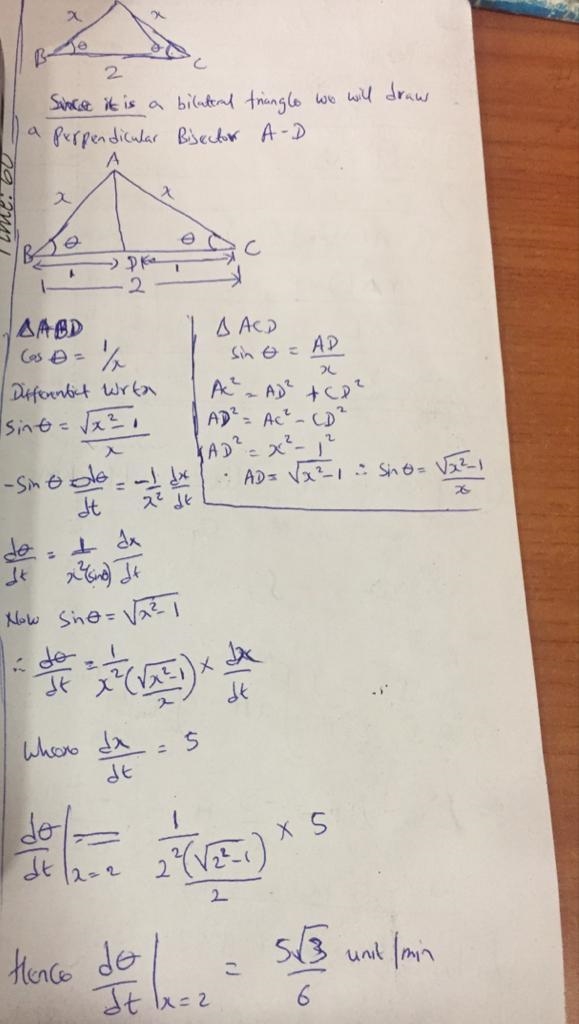 x x
B θ θ C
2
Since it is a bilateral triangle we will draw
a perpendicular Bisector A-D
A
x x
B θ θ C
1 D 1
2
Time: 60
ΔABD
Cos θ = 1/x
Differentiat wrtx
sin θ = √(x²-1)/x
-Sin θ dθ/dt = -1/x² dx/dt
ΔACD
Sin θ = AD/x
AC² = AD² + CD²
AD² = AC² - CD²
AD² = x² - 1²
∴ AD = √(x²-1) ∴ Sin θ = √(x²-1)/x
dθ/dt = 1/x²(sinθ) dx/dt
Now Sinθ = √(x²-1)
∴ dθ/dt = 1/x²(√(x²-1)/x) × dx/dt
Where dx/dt = 5
dθ/dt|x=2 = 1/2²(√(2²-1)/2) × 5
Hence dθ/dt|x=2 = 5√3/6 unit/min